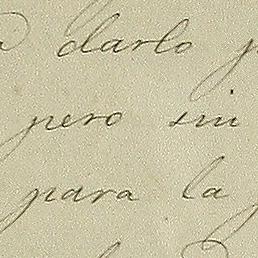 darlo
pero sin
para la